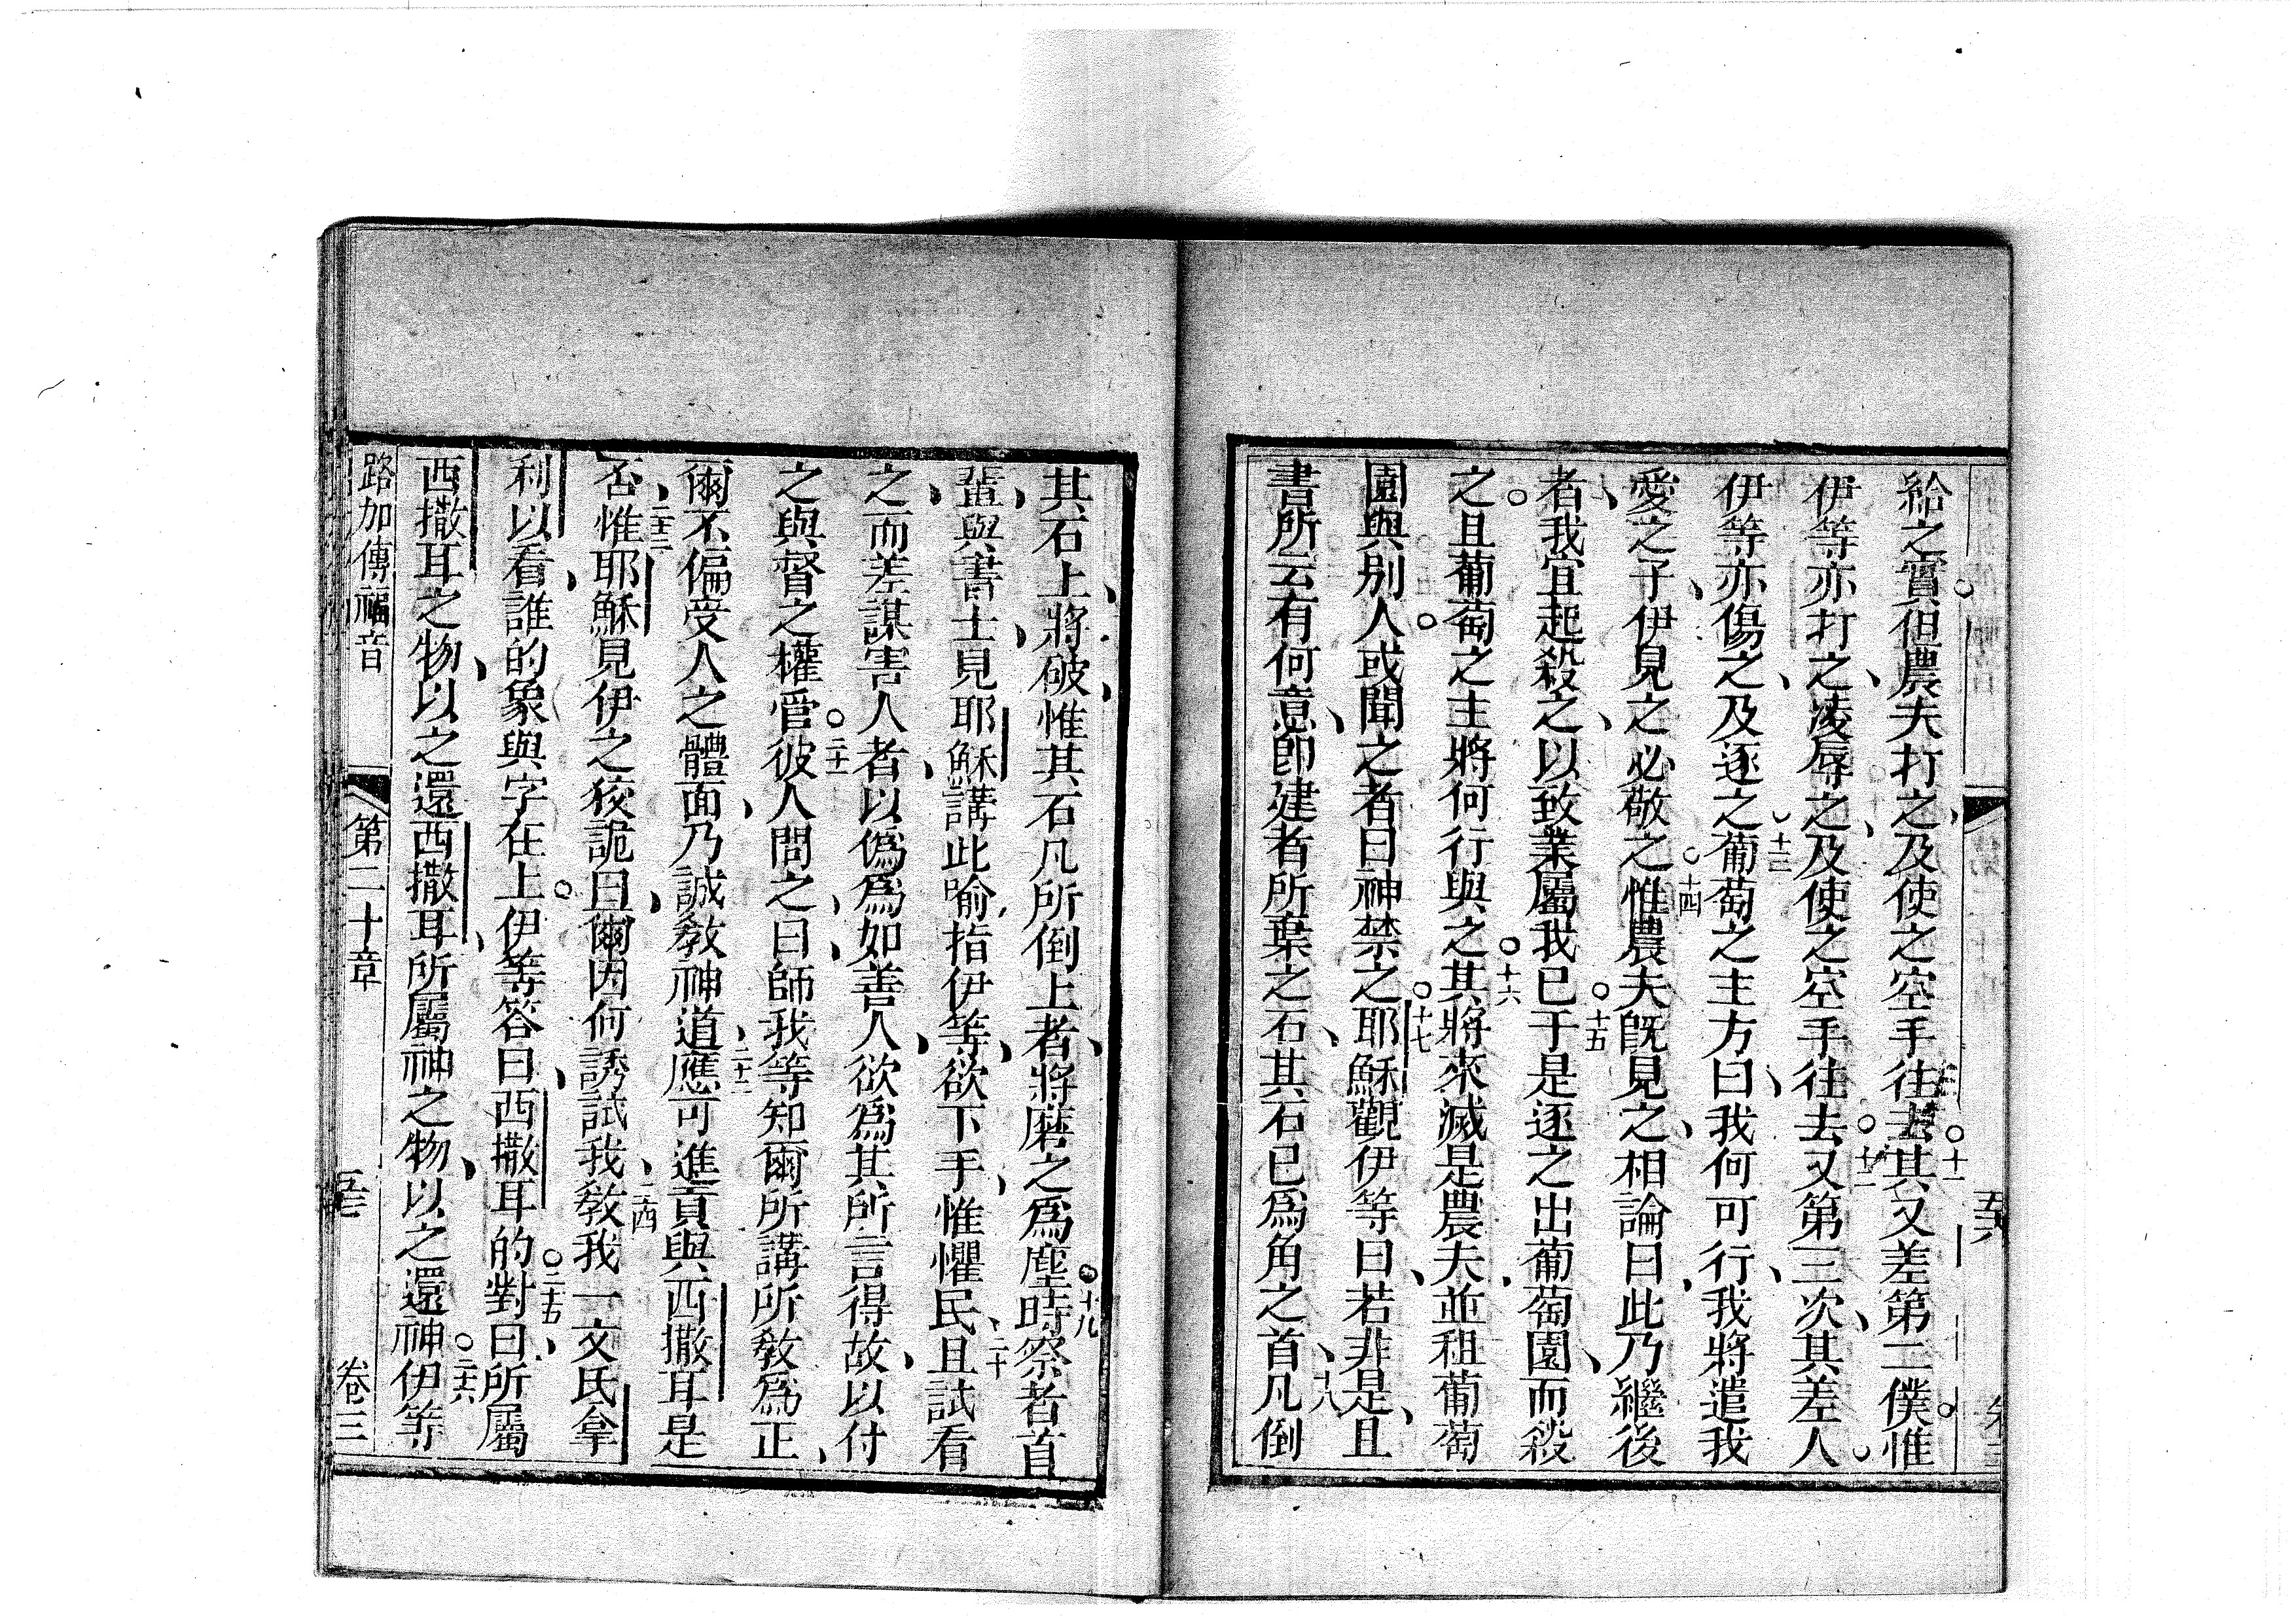 給之實但農夫打之及使之空手往去其又差第二僕惟
伊等亦打之淩辱之及使之空手往去又第三次其差人
伊等亦傷之及逐之葡萄之主方曰我何可行我將遣我
愛之子伊見之必敬之惟農夫旣見之相論曰此乃繼後
者我宜起殺之以致業屬我已于是逐之出葡萄園而殺
之且葡萄之主將何行與之其將來滅是農夫並租葡萄
園與別人或聞之者曰神禁之耶穌觀伊等曰若非是且
書所云有何意卽建者所棄之石其石已爲角之首凡倒
其石上將破惟其石凡所倒上者將磨之爲塵時祭者首
輩與書士見耶穌講此喻指伊等欲下手惟懼民且試看
之而差謀害人者以僞爲如善人欲爲其所言得故以付
之與督之權管彼人問之曰師我等知爾所講所教爲正
爾不偏受人之體面乃誠教神道應可進貢與西撒耳是
否惟耶穌見伊之狡詭曰爾因何誘試我教我一文氏拿
利以看誰的象與字在上伊等答曰西撒耳的對曰所屬
西撒耳之物以之還西撒耳所屬神之物以之還神伊等
路加傳福音 第二十章 卷三